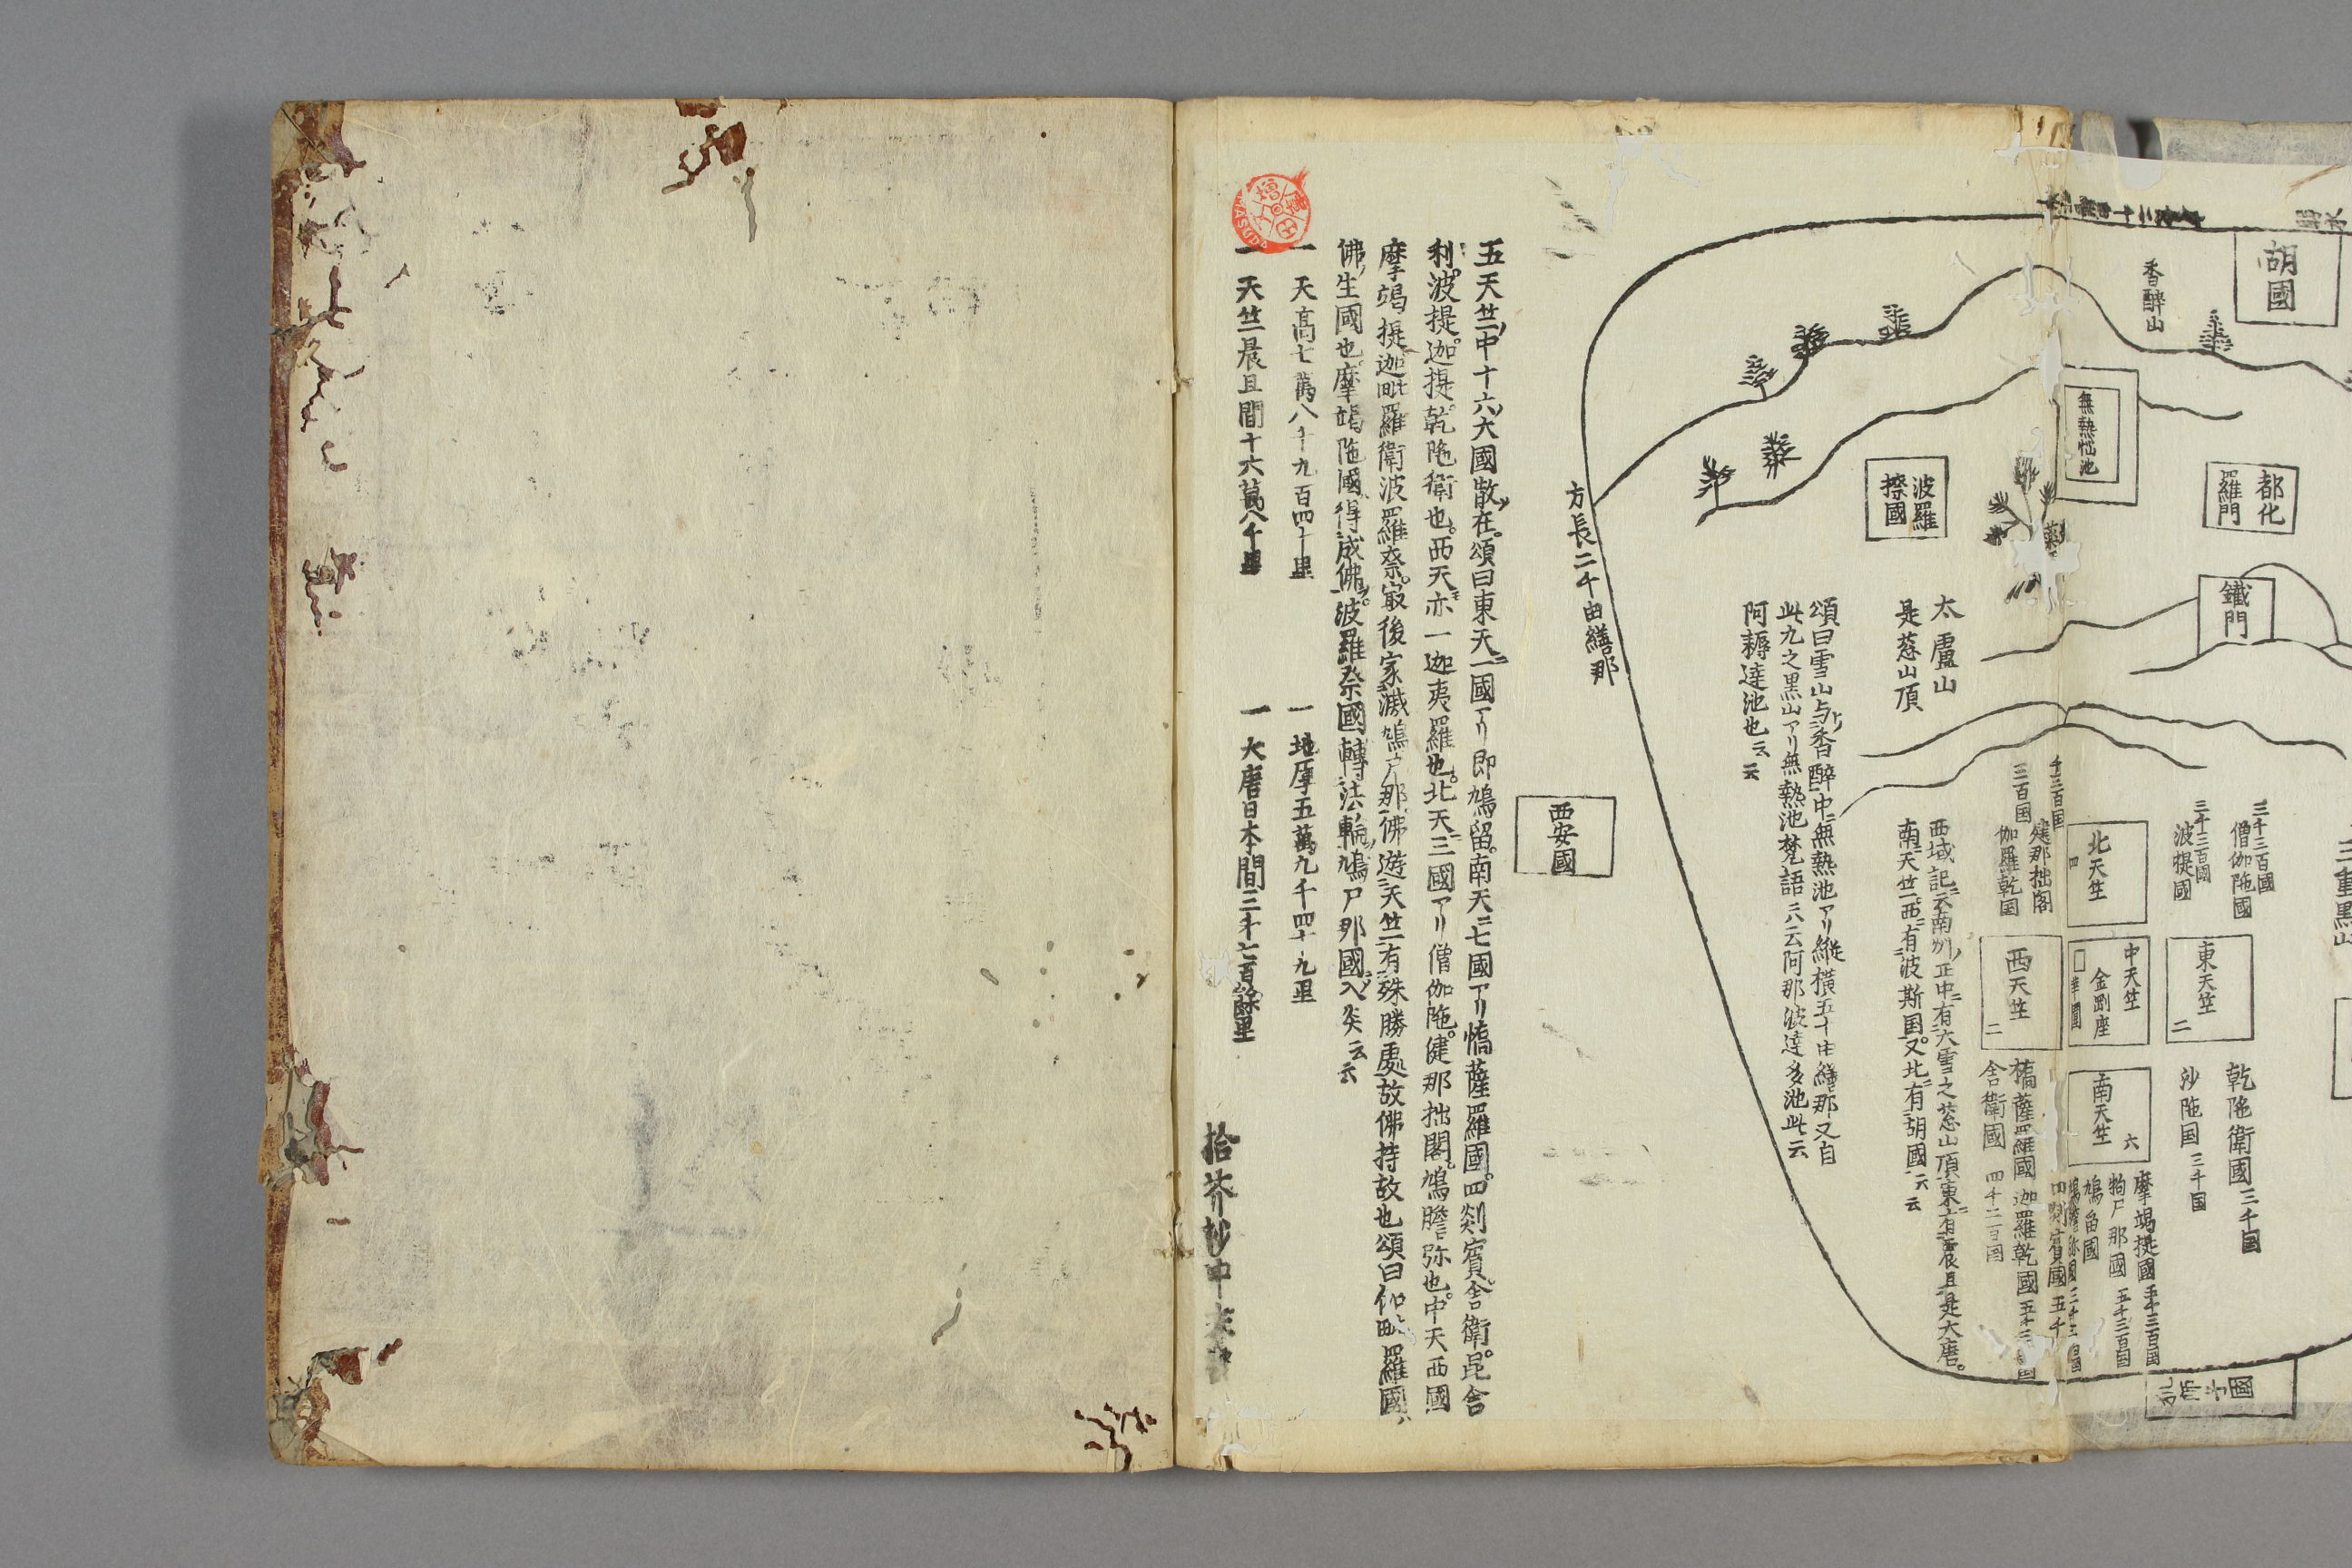 胡國
香醉山
無熱惱池
都化
羅門
波羅
捺國
鐵門
太盧山
是葱山頂
頌曰雪山与香醉中無熱池アリ縱横五十由繕那又自
此九之黒山アリ無熱池梵語ニハ云阿那波達多池此云
阿耨達池也云云
方長二千由繕那
西安國
三重黒山
三千三百國
僧伽陁國
三千三百國
波提國
北天竺
四
千三百国
三百国
健那拙閣
伽羅乾国
西域記云南州正中有大雪之葱山頂東有震旦是大唐。
南天竺西有波斯国又北有胡國云云
東天竺
二
中天竺
金剛座
西天竺
二
南天竺
六
乾陁衛國三千国
沙陁国三千国
摩竭提國三千三百國
狗尸那國五千三百国
鳩留國
罽賓國五千
橋薩羅國迦羅乾國
舎衛國四千二百国
五天竺ノ中十六ノ大國散在頌曰東天一國アリ即鳩留。南天ニ七國アリ憍薩羅國。四剡賓。舎衛。昆舎
利。波提。迦提。乾陁衛也。西天亦一迦夷羅也。北天ニ三國アリ僧伽陁。健那拙閣。鳩瞻弥也。中天西國
摩竭提迦毗羅衛波羅奈。最後家滅鳩尸那佛遊天竺有殊勝處故佛持故也頌曰伽毗羅國
佛生國也。摩竭陁國得成佛。波羅奈國轉法輪鳩尸那國入矣云云
一天高七萬八千九百四十里
一地厚五萬九千四十九里
一天竺晨旦間十六萬八千里
一大唐日本間三千七百餘里
拾芥抄中末
MASUDA